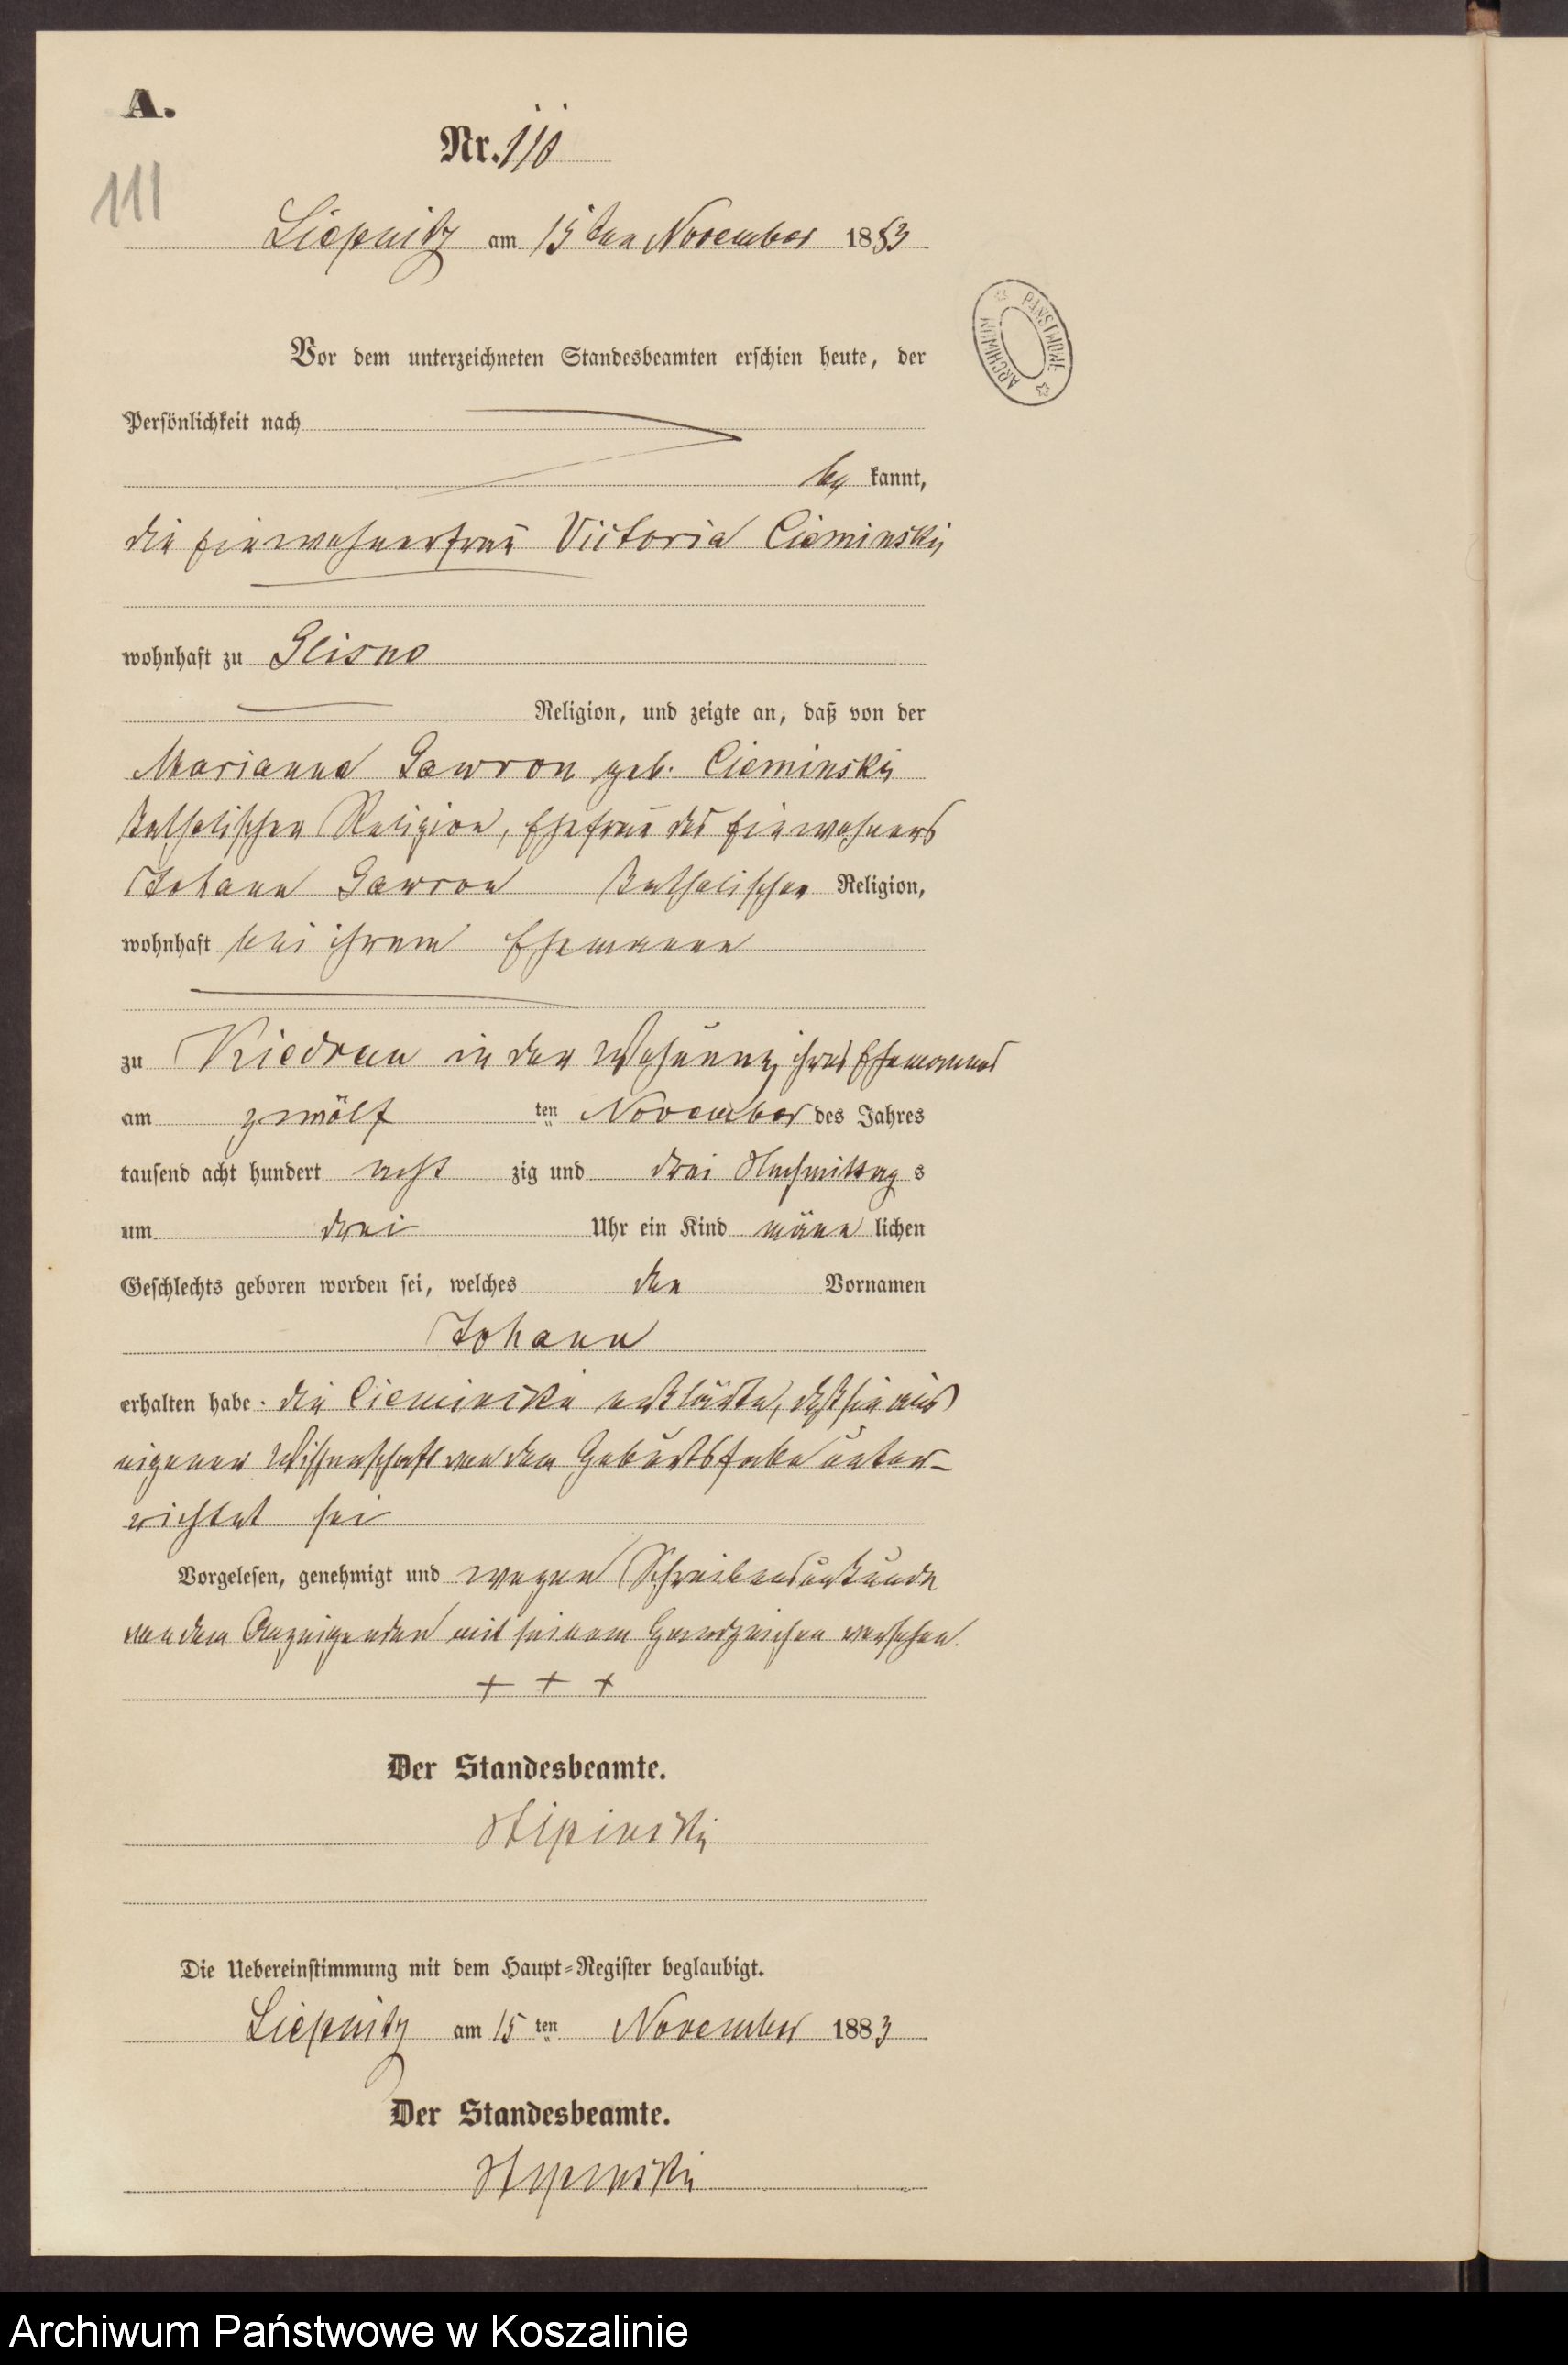 A.
Nr. 110
111
Liepnitz am 15ten November 1883
ARCHIWUM PAŃSTWOWE
Vor dem unterzeichneten Standesbeamten erschien heute, der
Persönlichkeit nach
be kannt,
die Einwohnerfrau Victoria Cieminski
wohnhaft zu Glisno
Religion, und zeigte an, daß von der
Marianna Gawron geb. Cieminski
katholischer Religion, Ehefrau des Einwohners
Johann Gawron katholischer Religion,
wohnhaft bei ihrem Ehemanne
zu Kiedrau in der Wohnung ihres Ehemannes
am zwölf ten November des Jahres
tausend acht hundert acht zig und drei Nachmittag s
um drei Uhr ein Kind männ lichen
Geschlechts geboren worden sei, welches den Vornamen
Johann
erhalten habe. die Cieminska erklärte, daß sie aus
eigener Wissenschaft von dem Geburtsfalle unter-
richtet sei
Vorgelesen, genehmigt und wegen Schreibensunkunde
von dem Anzeigenden mit seinem Handzeichen versehen.
+ + +
Der Standesbeamte.
Die Uebereinstimmung mit dem Haupt-Register beglaubigt.
Liepnitz am 15 ten November 1883
Der Standesbeamte.
Archiwum Państwowe w Koszalinie